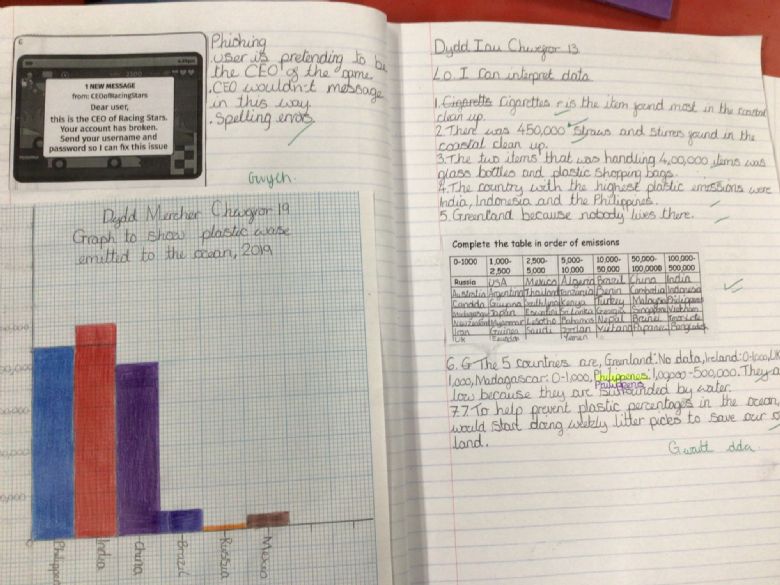 Phishing
.user is pretending to be
the CEO of the game
.CEO wouldn't message
in this way
.Spelling errors
1 NEW MESSAGE
from: CEOofRacingStars
Dear user,
this is the CEO of Racing Stars.
Your account has broken.
Send your username and
password so I can fix this issue
Gwych.
Dydd Mercher Chwefror 19
Graph to show plastic
emitted to the ocean, 2019
India
China
Brazil
Russia
Mexico
Dydd Iau Chwefror 13
Lo I can interpret data
1. Cigarettes is the item found most in the coastal
clean up.
2. There was 450,000 straws and stirrers found in the
coastal clean up.
3. The two items that was handling 4,00,000 items was
glass bottles and plastic shopping bags.
4. The country with the highest plastic emissions were
India, Indonesia and the Philippines.
5. Greenland because nobody lives there.
Complete the table in order of emissions
0-1000 1,000-2,500 2,500-5,000 5,000-10,000 10,000-50,000 50,000-100,000 100,000-500,000
Russia USA Mexico Algeria Brazil China India
Australia Argentina Thailand Tanzania Benin Cambodia Indonesia
Canada Guyana Kenya Turkey Malaysia
Madagascar Japan Sri Lanka Georgia
Myanmar Lesotho Bahamas Nepal Brunei
Iran Guinea Saudi Jordan Vietnam
UK Ecuador Yemen
6. G The 5 countries are, Greenland: No data, Ireland: 0-1,000, UK
1,000, Madagascar: 0-1,000, 100,000-500,000. They
low because they are surrounded by water.
7.7 To help prevent plastic percentages in the ocean,
would start doing weekly litter picks to save our
land.
Gwaith dda